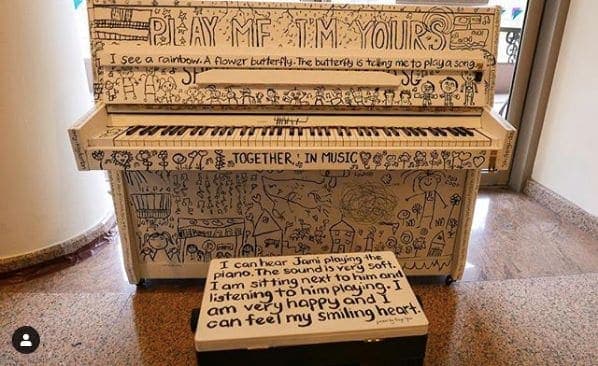 PLAY ME I'M YOURS
I see a rainbow. A flower butterfly. The butterfly is telling me to play a song.
SG
TOGETHER, IN MUSIC
I can hear Jami playing the
piano. The sound is very soft.
I am sitting next to him and
listening to him playing. I
am very happy and I
can feel my smiling heart.